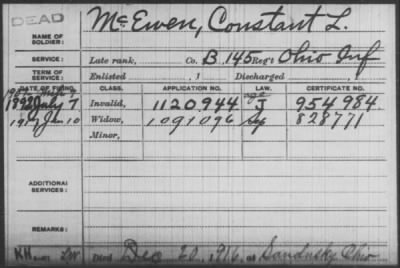 DEAD
NAME OF SOLDIER: McEwen, Constant L.
SERVICE: Late rank, Co. B. 145 Reg't Ohio Inf
TERM OF SERVICE: Enlisted , 1 Discharged , 1
DATE OF FILING. CLASS. APPLICATION NO. LAW. CERTIFICATE NO.
1892 July 7 Invalid, 1120944 J 954984.
1917 Ja 10 Widow, 1091096 828771
Minor,
ADDITIONAL SERVICES:
REMARKS:
Died Dec 20, 1916, at Sandusky Ohio